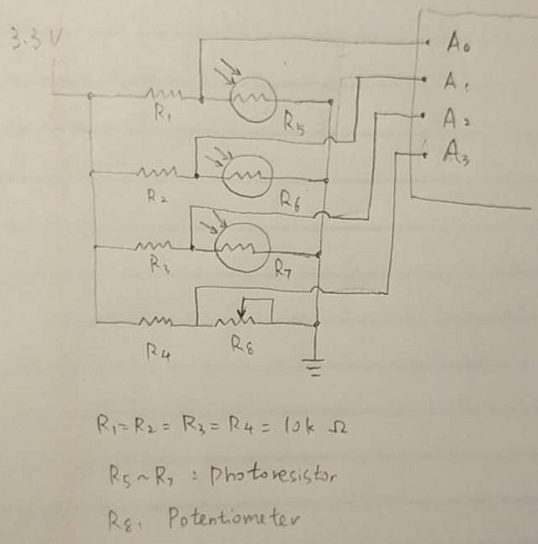 3.3 V
A0
A1
A2
A3
R1
R5
R2
R6
R3
R7
R4
R8
R1 = R2 = R3 = R4 = 10k Ω
R5 ~ R7 : photoresistor
R8: Potentiometer